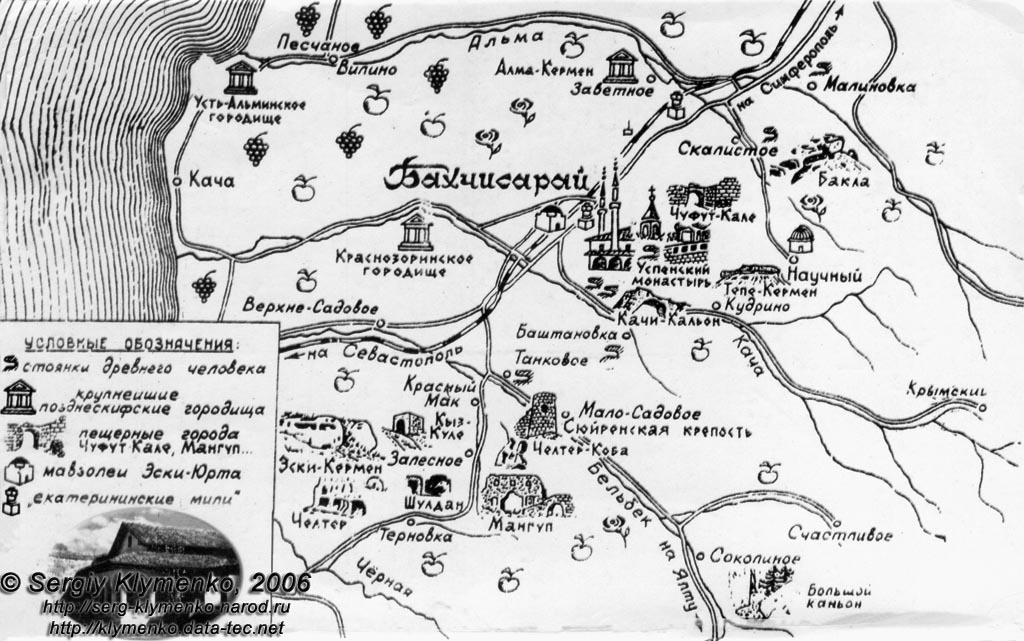 Песчаное
Вилино
Альма
Алма-Кермен
Заветное
на Симферополь
Малиновка
Усть-Альминское
городище
Скалистое
Бакла
Кача
Бахчисарай
Чуфут-Кале
Краснозоринское
городище
Успенский
монастырь
Научный
Тепе-Кермен
Кудрино
Качи-Кальон
Верхне-Садовое
на Севастополь
Баштановка
Танковое
Кача
Крымский
Красный
Мак
Мало-Садовое
Сюйренская крепость
Кыз-
Куле
Челтер-Коба
Эски-Кермен
Залесное
Шулдан
Челтер
Мангуп
Терновка
Бельбек
Чёрная
на Ялту
Счастливое
Соколиное
Большой
каньон
УСЛОВНЫЕ ОБОЗНАЧЕНИЯ:
стоянки древнего человека
крупнейшие
позднескифские городища
пещерные города
Чуфут Кале, Мангуп...
мавзолеи Эски-Юрта
„екатерининские мили"
© Sergiy Klymenko, 2006
http://serg-klymenko.narod.ru
http://klymenko.data-tec.net